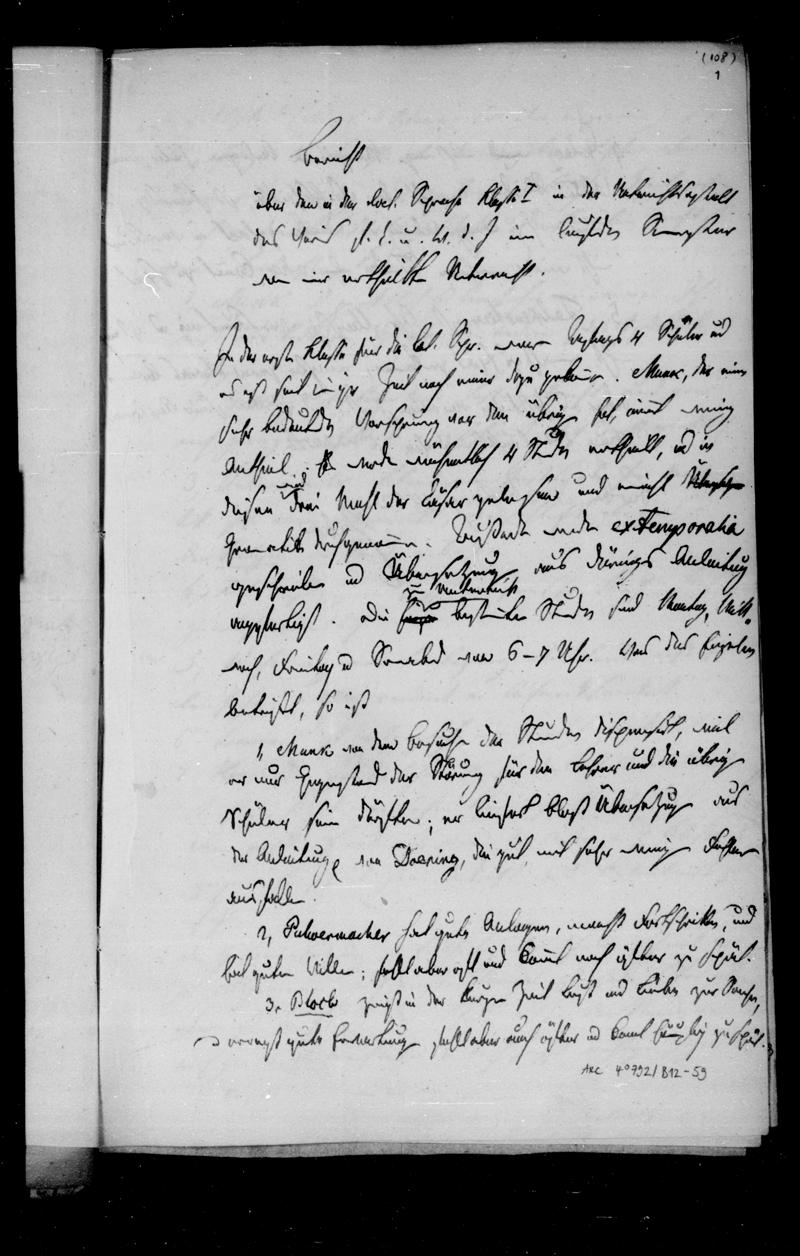 (108)
1
Bericht
über den in der lat. Sprache Klasse I in der Unterrichtsanstalt
des Vereins f. C. u. W. d. J. im letzten Semester
von mir ertheilten Unterricht.
In der ersten Klasse für die lat. Spr. waren Anfangs 4 Schüler und
es ist seit einiger Zeit noch einer dazu gekommen. Munk, der einen
sehr bedeutenden Vorsprung vor den übrigen hat, nimmt wenig
Antheil. Es werden wöchentlich 4 Stunden ertheilt, und in
diesen wird drei Mahl der Cäsar gelesen und einmal
Grammatik durchgenommen. Außerdem werden extemporalia
geschrieben und Übersetzungen aus Dörings Anleitung
zum Unterricht
angefertigt. Die bestimmten Stunden sind Montag, Mitt-
woch, Freitag und Sonnabend von 6-7 Uhr. Was das Einzelne
betrifft, so ist
1, Munk von dem Besuche der Stunden dispensirt, weil
er nur Gegenstand der Störung für den Lehrer und die übrigen
Schüler sein dürfte; er liefert bloß Übersetzungen aus
der Anleitung von Doering, die gut, mit sehr wenig Fehlern
ausfallen.
2, Pulvermacher hat gute Anlagen, macht Fortschritte, und
hat guten Willen; fehlt aber oft und kommt noch öfter zu spät.
3, Bloch zeigt in der kurzen Zeit Lust und Liebe zur Sache,
erregt gute Erwartung, fehlt aber auch öfter und kommt häufig zu spät.
ARC 4°792/B12-59